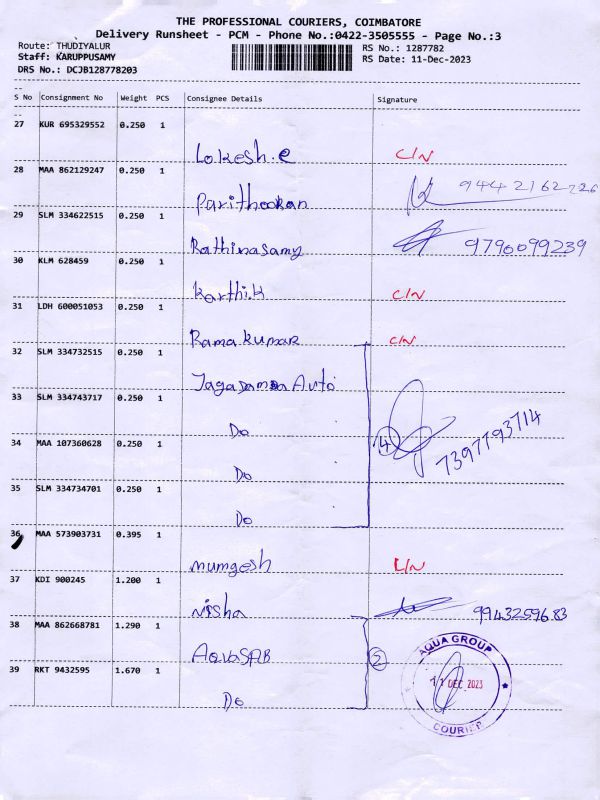 THE PROFESSIONAL COURIERS, COIMBATORE
Delivery Runsheet - PCM - Phone No.:0422-3505555 - Page No.:3
Route: THUDIYALUR
RS No.: 1287782
Staff: KARUPPUSAMY
RS Date: 11-Dec-2023
DRS No.: DCJB128778203
S No Consignment No Weight PCS Consignee Details Signature
27 KUR 695329552 0.250 1
Lokesh.e C/N
28 MAA 862129247 0.250 1
Paritheokan 9442162226
29 SLM 334622515 0.250 1
Rathinasamy 9790099239
30 KLM 628459 0.250 1
Karthi.k C/N
31 LDH 600051053 0.250 1
Ramakumar C/N
32 SLM 334732515 0.250 1
Jagadamba Auto
33 SLM 334743717 0.250 1
Do
34 MAA 107360628 0.250 1
4 7397793714
Do
35 SLM 334734701 0.250 1
Do
36 MAA 573903731 0.395 1
murugesh L/N
37 KDI 900245 1.200 1
Nisha 9943259683
38 MAA 862668781 1.290 1
AquaSub 2
39 RKT 9432595 1.670 1
Do
AQUA GROUP
11 DEC 2023
COURIER